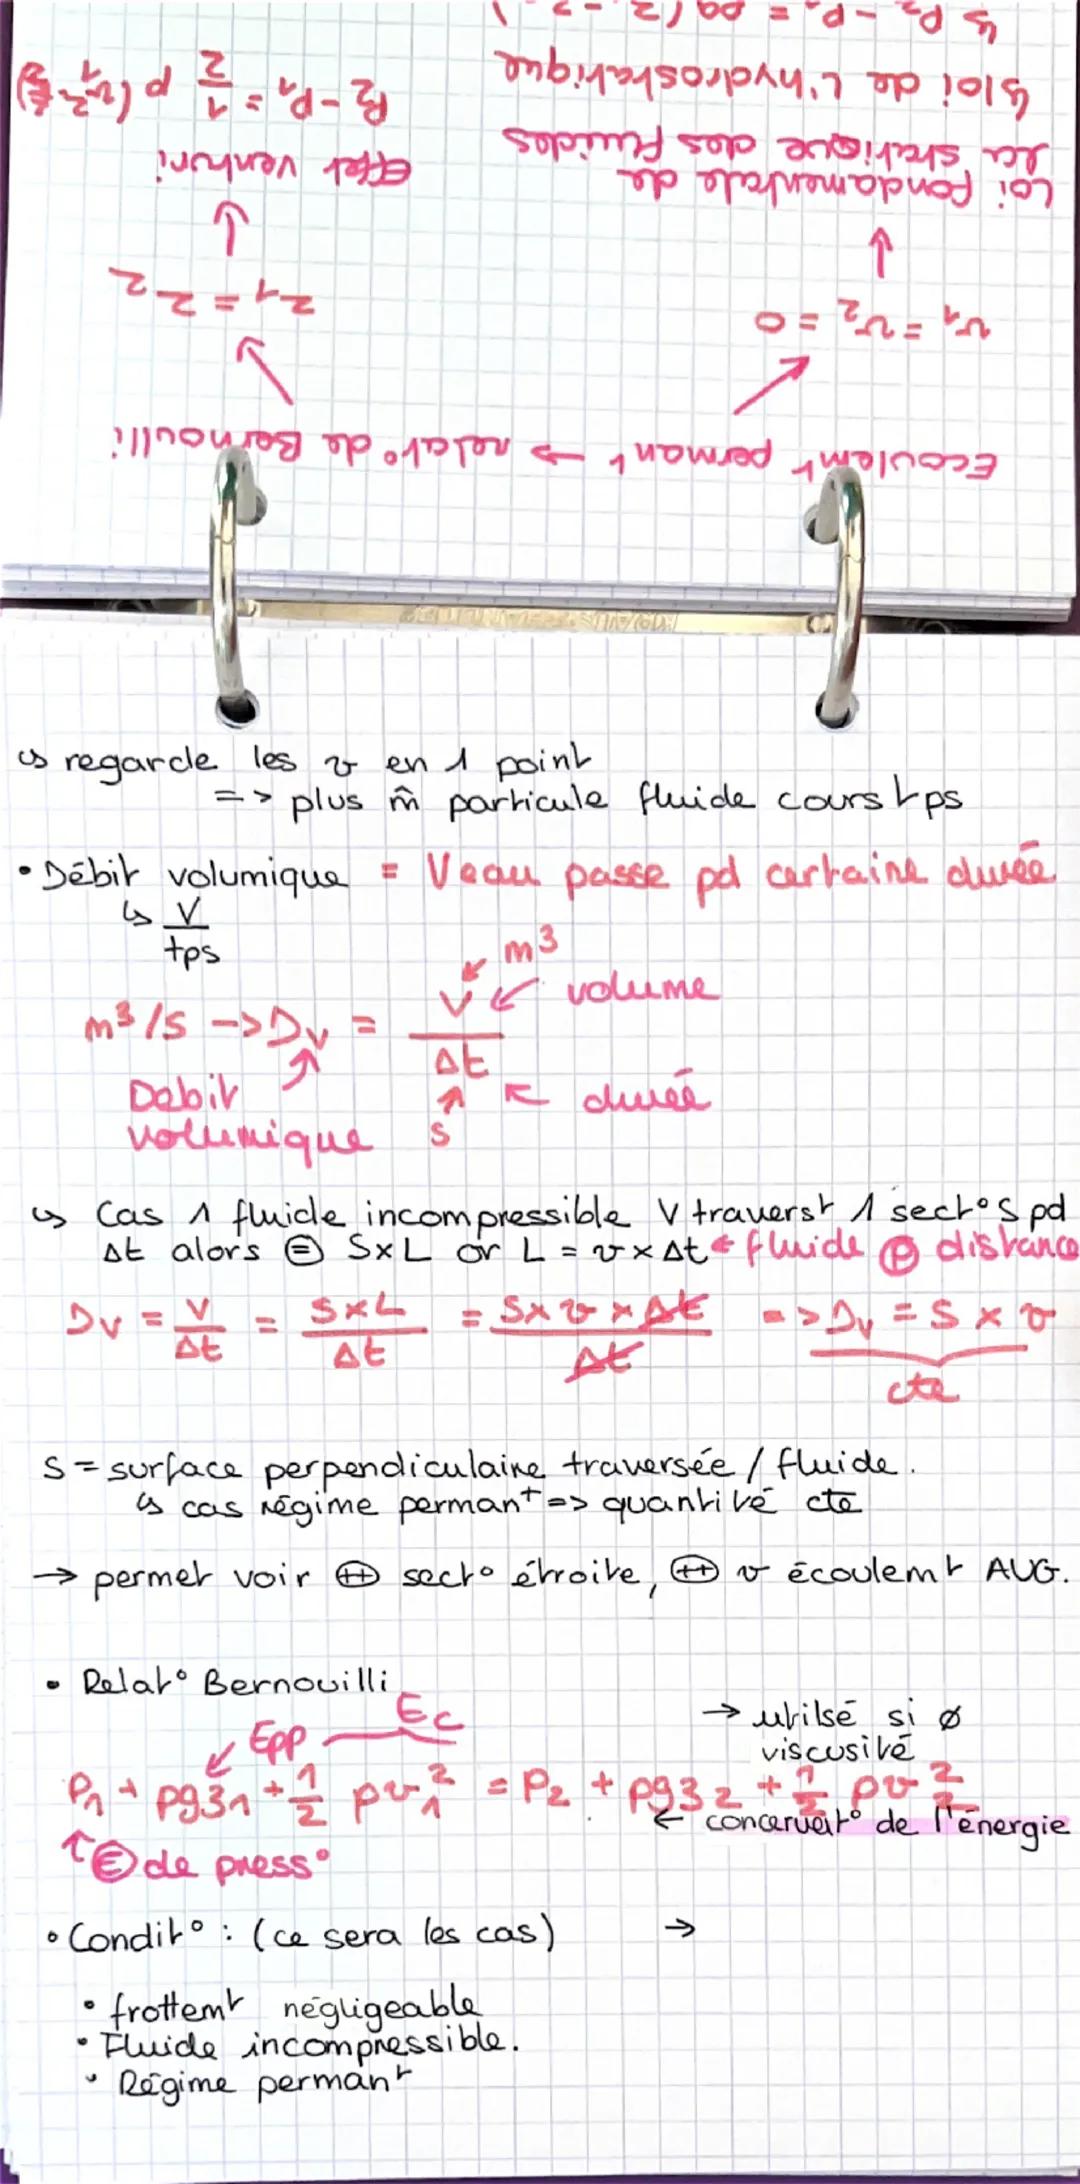 Ecoulemt permant → relat° de Bernoulli
v₁ = v₂ = 0
z₁ = z₂
Loi fondamentale de
la statique des fluides
↳ loi de l'hydrostatique
↳ P₂ - P₁ = ρg (z
Effet venturi
P₂ - P₁ = 1/2 ρ (v₁²
↳ regarde les v en 1 point
=> plus m̂ particule fluide cours tps
• Débit volumique = V eau passe pd certaine durée
↳ V/tps
m³
volume
m³/s -> Dv = V/Δt
Debit
volumique
s
durée
↳ Cas 1 fluide incompressible V traverst 1 sect° S pd
Δt alors ⊜ S×L or L = v×Δt ← fluide Ⓟ distance
Dv = V/Δt = S×L/Δt = S×v×Δt/Δt => Dv = S × v
cte
S = surface perpendiculaire traversée / fluide.
↳ cas régime permant => quantité cte
→ permet voir ⊕ sect° étroite, ⊕ v écoulemt AUG.
• Relat° Bernouilli
Epp
Ec
→ utilsé si ø
viscosité
P₁ + ρgz₁ + 1/2 ρv₁² = P₂ + ρgz₂ + 1/2 ρv₂²
← concervat° de l'énergie
↑ Ⓔ de press°
• Condit° : (ce sera les cas) →
• frottemt négligeable
• Fluide incompressible.
• Régime permant